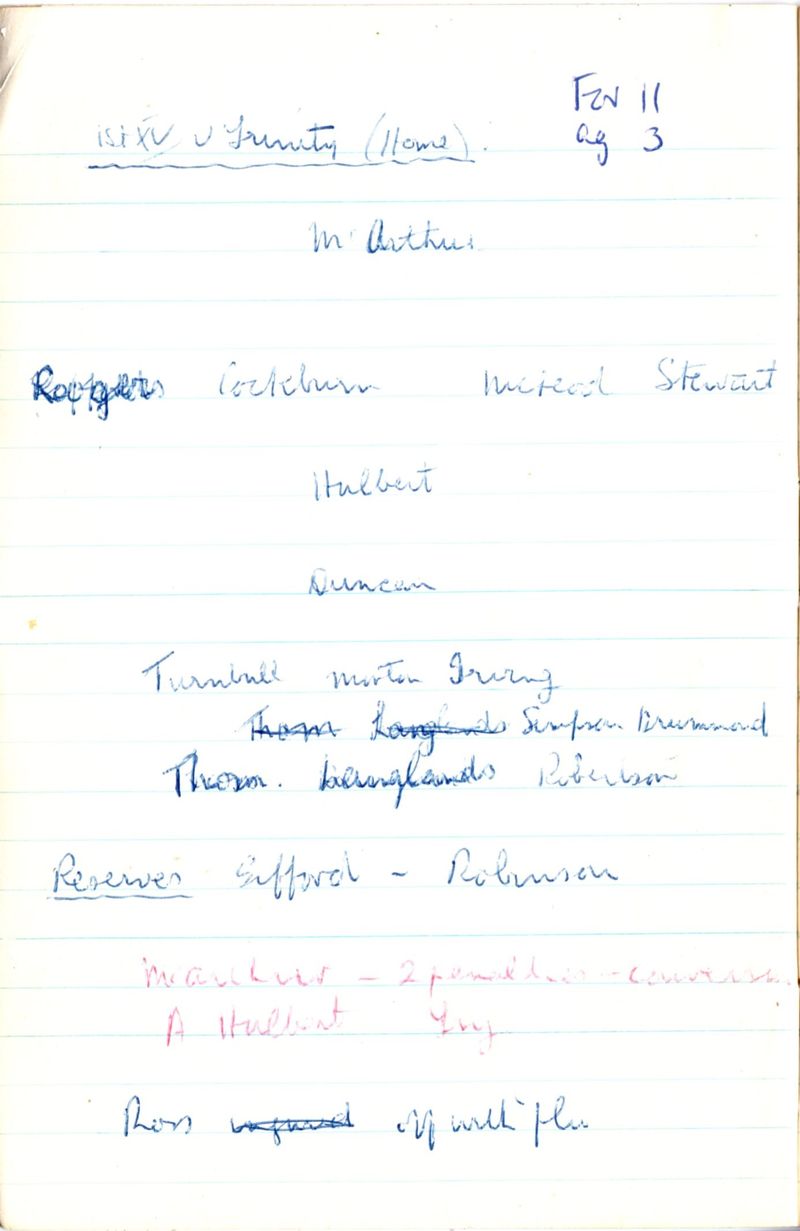 For 11
1st XV v Trinity (Home).
ag 3
McArthur
Rodgers Cockburn McLeod Stewart
Hulbert
Duncan
Turnbull Morton Irving
Thom Langlands Simpson Drummond
Thom. Langlands Robertson
Reserves Gifford - Robinson
McArthur - 2 penalties - convers.
A Hulbert Try
Ross injured off with flu